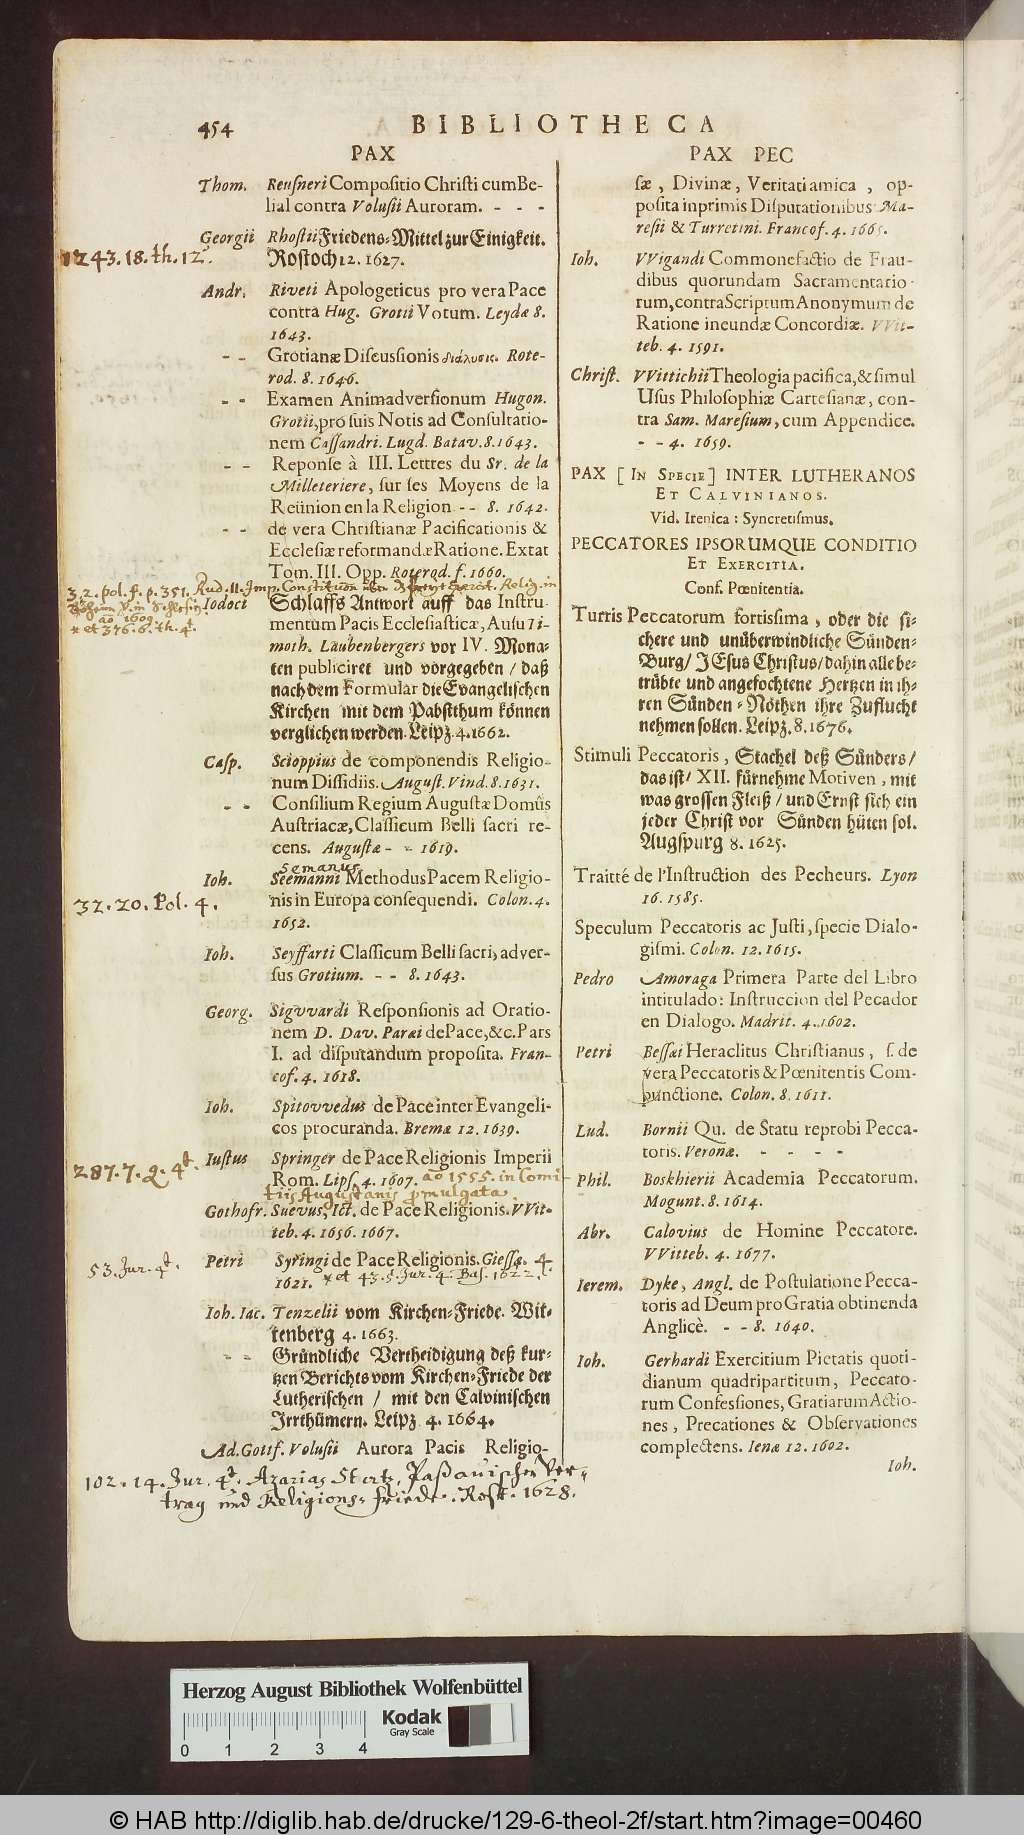 454
BIBLIOTHECA
PAX
Thom. Reusneri Compositio Christi cum Be-
lial contra Volusii Auroram. - - -
Georgii Rhostii Friedens-Mittel zur Einigkeit.
1243.18.th.12°. Rostoch 12. 1627.
Andr. Riveti Apologeticus pro vera Pace
contra Hug. Grotii Votum. Leydæ 8.
1643.
- - Grotianæ Discussionis διάλυσις. Rote-
rod. 8. 1646.
- - Examen Animadversionum Hugon.
Grotii, pro suis Notis ad Consultatio-
nem Cassandri. Lugd. Batav. 8. 1643.
- - Reponse à III. Lettres du Sr. de la
Milleteriere, sur ses Moyens de la
Reünion en la Religion - - 8. 1642.
- - de vera Christianæ Pacificationis &
Ecclesiæ reformandæ Ratione. Extat
Tom. III. Opp. Roterod. f. 1660.
32. pol. f. p. 351. Rud. II. Imp. Constitution Relig. in
Schlesin
ao 1609.
et 376.6.th.4t.
Iodoci Schlaffs Antwort auff das Instru-
mentum Pacis Ecclesiasticæ, Ausu Ti-
moth. Laubenbergers vor IV. Mona-
ten publiciret und vorgegeben / daß
nach dem Formular die Evangelischen
Kirchen mit dem Pabstthum können
verglichen werden. Leipz. 4. 1662.
Casp. Scioppius de componendis Religio-
num Dissidiis. August. Vind. 8. 1631.
- - Consilium Regium Augustæ Domûs
Austriacæ, Classicum Belli sacri re-
cens. Augustæ - - 1619.
Semanus
Ioh. Seemanni Methodus Pacem Religio-
32.20.Pol.4. nis in Europa consequendi. Colon. 4.
1652.
Ioh. Seyffarti Classicum Belli sacri, adver-
sus Grotium. - - 8. 1643.
Georg. Sigvvardi Responsionis ad Oratio-
nem D. Dav. Paræi de Pace, &c. Pars
I. ad disputandum proposita. Fran-
cof. 4. 1618.
Ioh. Spitovvedus de Pace inter Evangeli-
cos procuranda. Bremæ 12. 1639.
287.7.Q.4t. Iustus Springer de Pace Religionis Imperii
Rom. Lips. 4. 1607. ao 1555. in Comi-
tiis Augustanis promulgata.
Gothofr. Suevus, Ict. de Pace Religionis. VVit-
teb. 4. 1656. 1667.
53.Jur.4t. Petri Syringi de Pace Religionis. Giessæ. 4.
1621. et 43.5.Jur.4. Bas. 1622.
Ioh. Iac. Tenzelii vom Kirchen-Friede. Wit-
tenberg 4. 1663.
- - Gründliche Vertheidigung deß kur-
tzen Berichts vom Kirchen-Friede der
Lutherischen / mit den Calvinischen
Irrthümern. Leipz. 4. 1664.
Ad. Gottf. Volusii Aurora Pacis Religio-
102.14.Jur.4t. Azarias Stertz, Paßauischer Ver-
trag und Religions-friede. Rost. 1628.
PAX PEC
sæ, Divinæ, Veritati amica, op-
posita inprimis Disputationibus Ma-
resii & Turretini. Francof. 4. 1665.
Ioh. VVigandi Commonefactio de Frau-
dibus quorundam Sacramentario-
rum, contra Scriptum Anonymum de
Ratione ineundæ Concordiæ. VVit-
teb. 4. 1591.
Christ. VVittichii Theologia pacifica, & simul
Usus Philosophiæ Cartesianæ, con-
tra Sam. Maresium, cum Appendice.
- - 4. 1659.
PAX [IN SPECIE] INTER LUTHERANOS
ET CALVINIANOS.
Vid. Irenica: Syncretismus.
PECCATORES IPSORUMQUE CONDITIO
ET EXERCITIA.
Conf. Pœnitentia.
Turris Peccatorum fortissima, oder die si-
chere und unüberwindliche Sünden-
Burg / JEsus Christus / dahin alle be-
trübte und angefochtene Hertzen in ih-
ren Sünden-Nöthen ihre Zuflucht
nehmen sollen. Leipz. 8. 1676.
Stimuli Peccatoris, Stachel deß Sünders /
das ist / XII. fürnehme Motiven, mit
was grossen Fleiß / und Ernst sich ein
jeder Christ vor Sünden hüten sol.
Augspurg 8. 1625.
Traitté de l'Instruction des Pecheurs. Lyon
16. 1585.
Speculum Peccatoris ac Justi, specie Dialo-
gismi. Colon. 12. 1615.
Pedro Amoraga Primera Parte del Libro
intitulado: Instruccion del Pecador
en Dialogo. Madrit. 4. 1602.
Petri Bessæi Heraclitus Christianus, s. de
vera Peccatoris & Pœnitentis Com-
punctione. Colon. 8. 1611.
Lud. Bornii Qu. de Statu reprobi Pecca-
toris. Veronæ. - - - -
Phil. Boskhierii Academia Peccatorum.
Mogunt. 8. 1614.
Abr. Calovius de Homine Peccatore.
VVitteb. 4. 1677.
Ierem. Dyke, Angl. de Postulatione Pecca-
toris ad Deum pro Gratia obtinenda
Anglicè. - - 8. 1640.
Ioh. Gerhardi Exercitium Pietatis quoti-
dianum quadripartitum, Peccato-
rum Confessiones, Gratiarum Actio-
nes, Precationes & Observationes
complectens. Ienæ 12. 1602.
Ioh.
Herzog August Bibliothek Wolfenbüttel
Kodak
Gray Scale
0 1 2 3 4
© HAB http://diglib.hab.de/drucke/129-6-theol-2f/start.htm?image=00460